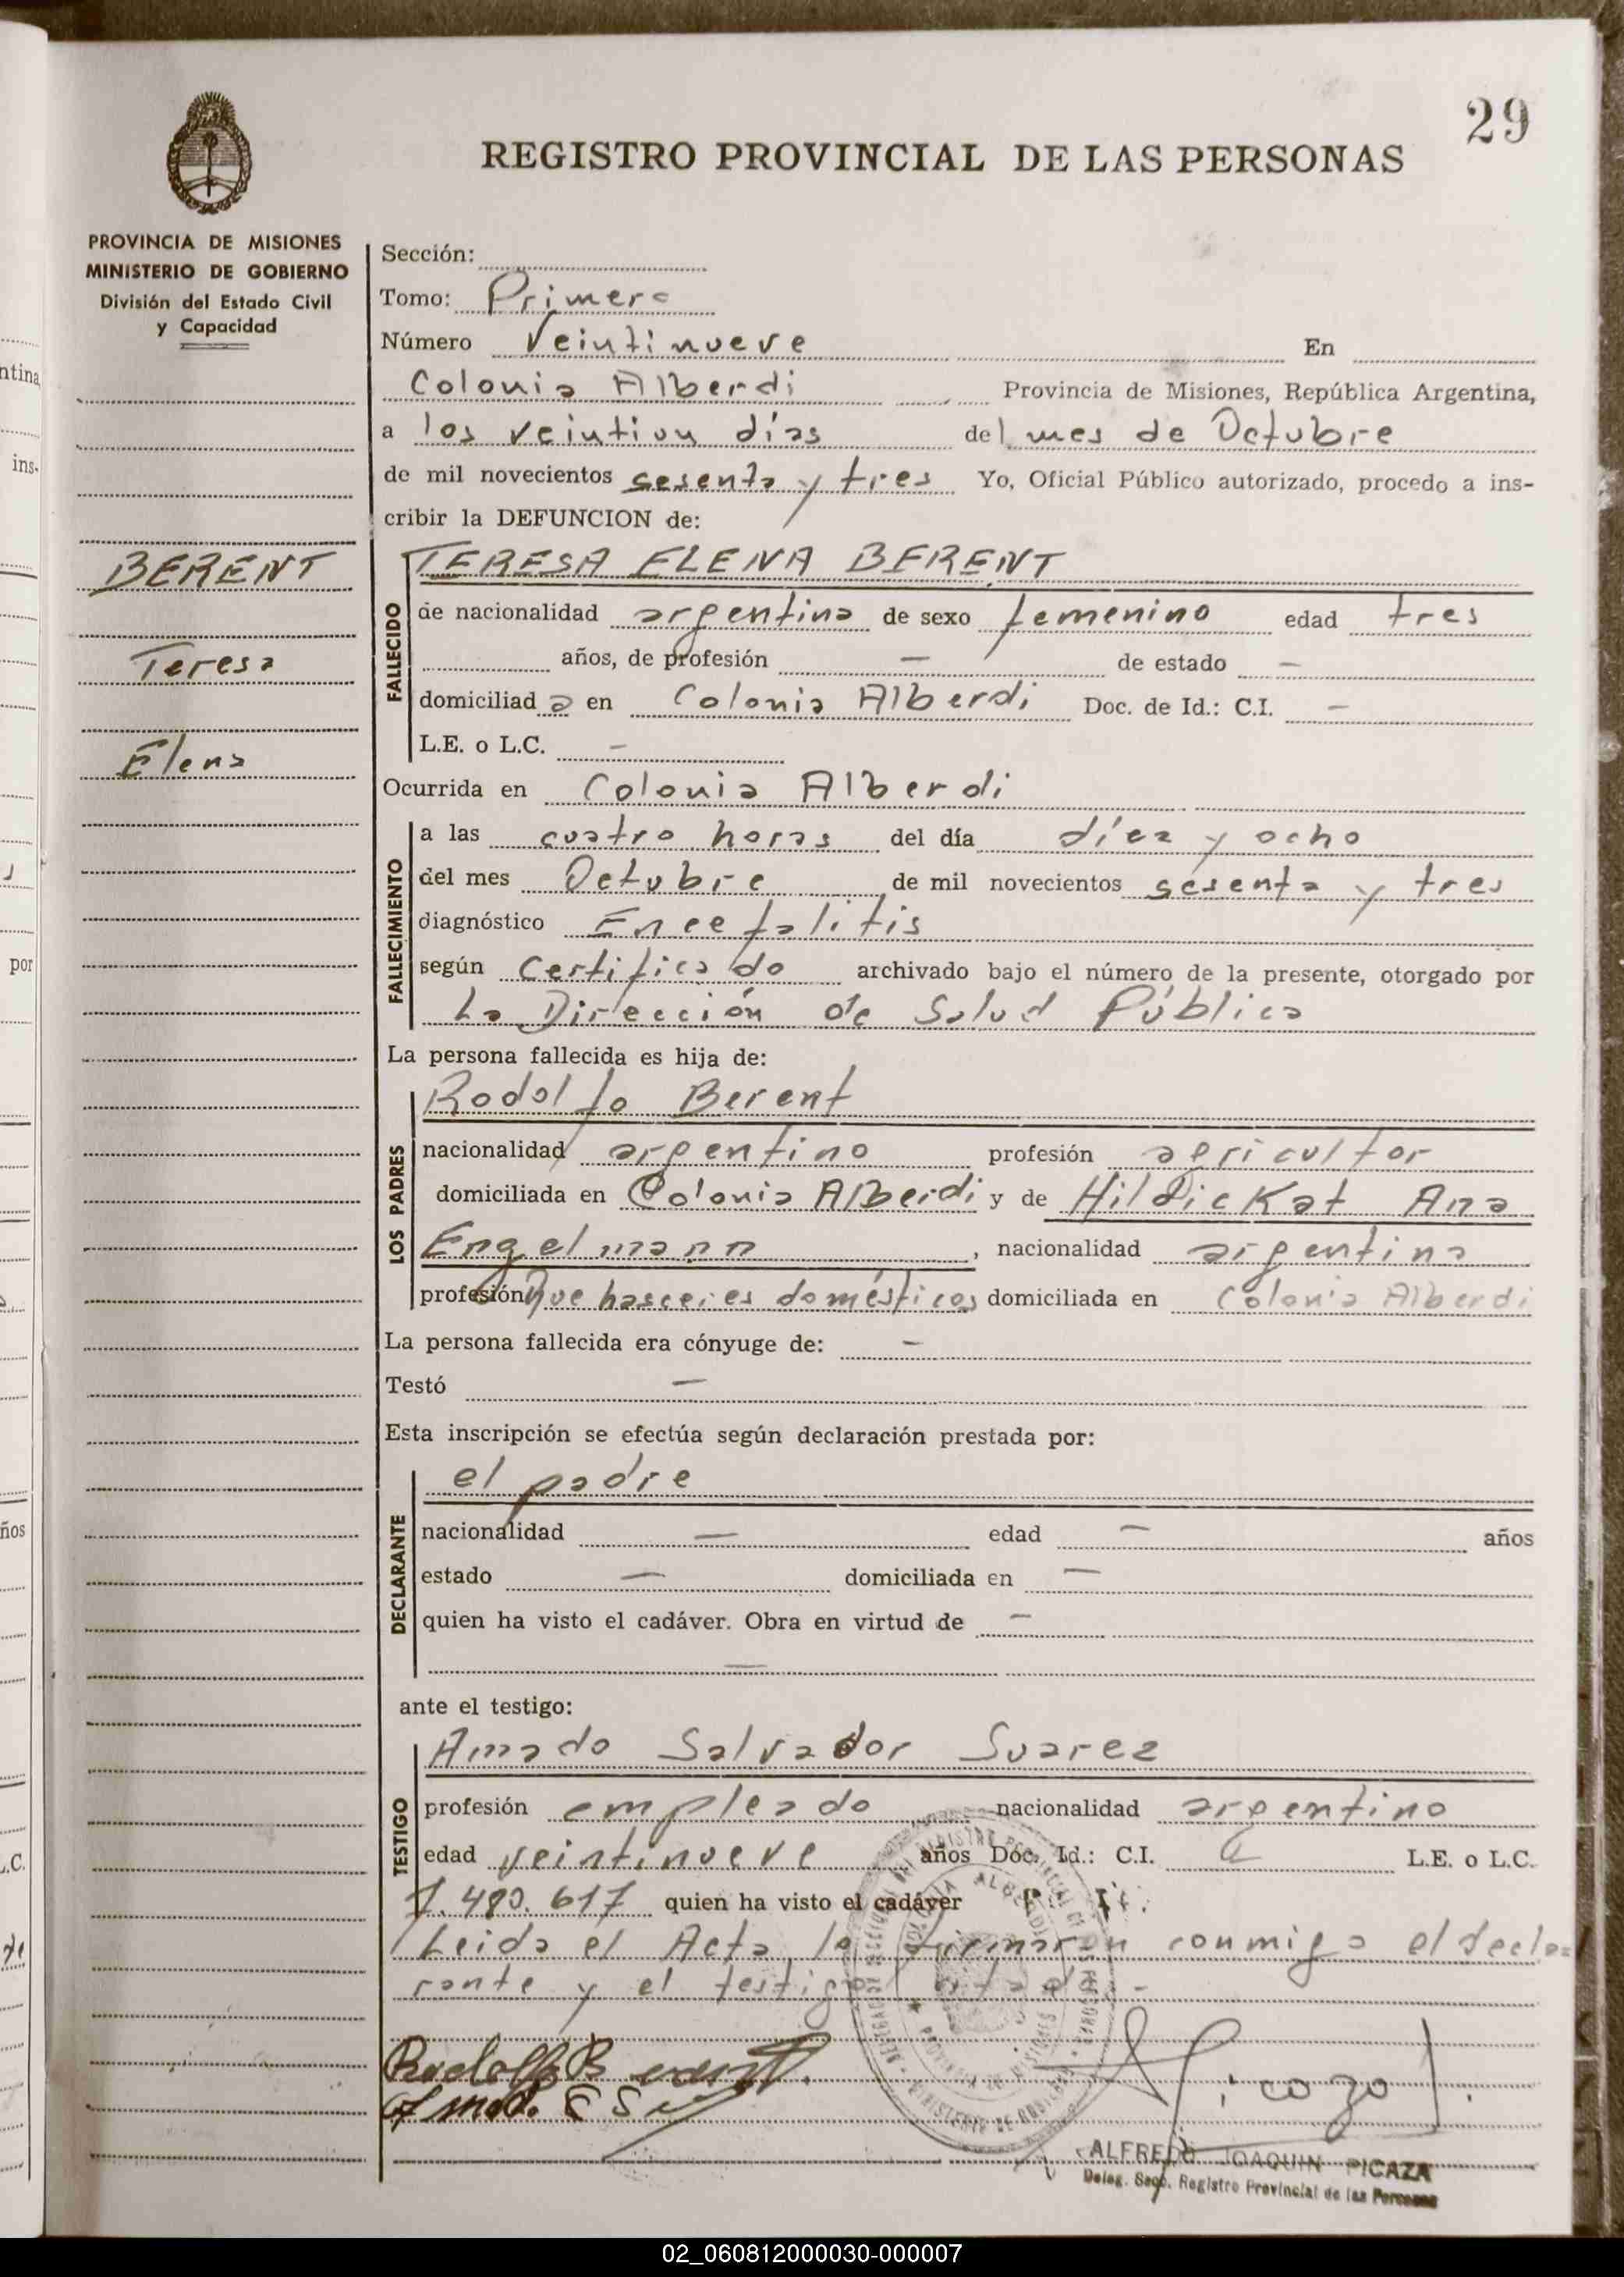 29
REGISTRO PROVINCIAL DE LAS PERSONAS
PROVINCIA DE MISIONES
MINISTERIO DE GOBIERNO
División del Estado Civil
y Capacidad
BERENT
Teresa
Elena
Sección:
Tomo: Primero
Número Veintinueve En
Colonia Alberdi Provincia de Misiones, República Argentina,
a los veintiun días del mes de Octubre
de mil novecientos sesenta y tres Yo, Oficial Público autorizado, procedo a ins-
cribir la DEFUNCION de:
FALLECIDO
TERESA ELENA BERENT
de nacionalidad argentina de sexo femenino edad tres
años, de profesión — de estado —
domiciliad a en Colonia Alberdi Doc. de Id.: C.I. —
L.E. o L.C. —
Ocurrida en Colonia Alberdi
FALLECIMIENTO
a las cuatro horas del día diez y ocho
del mes Octubre de mil novecientos sesenta y tres
diagnóstico Encefalitis
según Certificado archivado bajo el número de la presente, otorgado por
La Dirección de Salud Pública
La persona fallecida es hija de:
LOS PADRES
Rodolfo Berent
nacionalidad argentino profesión agricultor
domiciliada en Colonia Alberdi y de Hildickat Ana
Engelmann, nacionalidad argentina
profesión Que hasceres domésticos domiciliada en Colonia Alberdi
La persona fallecida era cónyuge de: —
Testó —
Esta inscripción se efectúa según declaración prestada por:
DECLARANTE
el padre
nacionalidad — edad — años
estado — domiciliada en —
quien ha visto el cadáver. Obra en virtud de —
—
ante el testigo:
TESTIGO
Amado Salvador Suarez
profesión empleado nacionalidad argentino
edad veintinueve años Doc. Id.: C.I. L.E. o L.C.
7.480.617 quien ha visto el cadáver
Leida el Acta la firmaron conmigo el decla-
rante y el testigo
Rodolfo Berent
Picaza
ALFREDO JOAQUIN PICAZA
Deleg. Secc. Registro Provincial de las Personas
ntina
ins-
por
ños
.C.
02_060812000030-000007